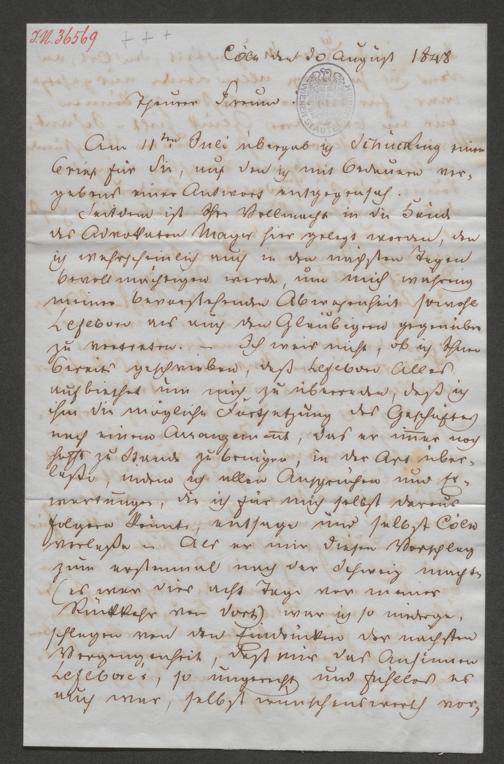 I.N. 36569
Cöln den 30 August 1848
Theurer Freund.
Am 11ten Juli übergab ich Schucking einen
Brief für Sie, auf den ich mit Bedauern ver-
gebens einer Antwort entgegensah.
Seitdem ist Ihre Vollmacht in die Hände
des Advokaten Mayer hier gelegt worden, den
ich wahrscheinlich auch in den nächsten Tagen
bevollmächtigen werde, um mich während
meiner bevorstehenden Abwesenheit sowohl
Lefebvre als auch den Gläubigern gegenüber
zu vertreten. — Ich weis nicht, ob ich Ihnen
bereits geschrieben, daß Lefebvre Alles
aufbiethet um mich zu überreden, daß ich
ihm die mögliche Fortsetzung des Geschäftes
nach einem Arrangement, das er immer noch
hofft zu Stande zu bringen, in der Art über-
laße, indem ich allen Ansprüchen und Er-
wartungen, die ich für mich selbst daraus
folgern könnte, entsage und selbst Cöln
verlaße. Als er mir diesen Vorschlag
zum erstenmal nach der Schweiz machte
(es war dies acht Tage vor meiner
Rückkehr von dort) war ich so niederge-
schlagen von den Eindrücken der nächsten
Vergangenheit, daß mir das Ansinnen
Lefebvre's, so ungerecht und fühllos es
auch war, selbst wünschenswerth vor-